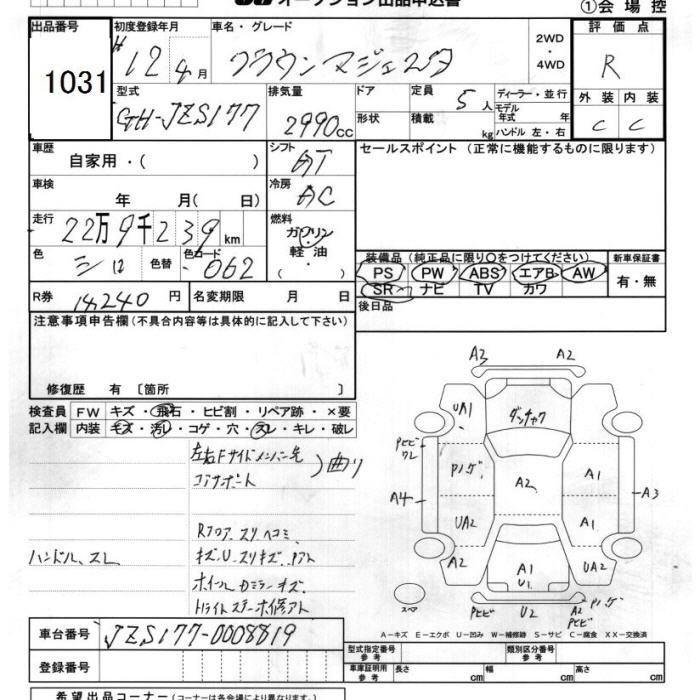 オークション出品申込書
①会場控
出品番号
1031
初度登録年月
H12年 月
車名・グレード
クラウンマジェスタ
2WD
・
4WD
評価点
R
外装 内装
C C
型式
GH-JZS177
排気量
2990cc
ドア
形状
定員
5人
積載
kg
ディーラー・並行
モデル
年式 年
ハンドル 左・右
車歴
自家用・( )
シフト
AT
セールスポイント (正常に機能するものに限ります)
車検
年 月( 日)
冷房
AC
走行
22万9千239km
燃料
ガソリン
・
軽油
・
色
シロ
色替
色カラード
062
装備品(純正品に限り○をつけてください)
新車保証書
PS PW ABS エアB AW
SR ナビ TV カワ
有・無
R券
14240円
名変期限 月 日
後日品
注意事項申告欄(不具合内容等は具体的に記入して下さい)
修復歴 有 〔箇所 〕
検査員 FW キズ・飛石・ヒビ割・リペア跡・×要
記入欄 内装 キズ・汚レ・コゲ・穴・スレ・キレ・破レ
左右Fサイドメンバー先
コアサポート
)曲り
Rフロア スリ ヘコミ
ハンドル スレ
キズ・U・スリキズ
ホイール
キズ
A3 A2
UA1
ダッチャク
Pヒビ
ワレ
A2
A1
A4
A3
UA2
A1
A2
A1
U1
UA2
スペア
Pヒビ
U2
A2
Pヒビ
A-キズ E-エクボ U-凹み W-補修跡 S-サビ C-腐食 XX-交換済
車台番号
JZS177-0008819
登録番号
型式指定番号
参考
類別区分番号
参考
車庫証明用
参考
長さ cm 幅 cm 高さ cm
希望出品コーナー(コーナーは各会場により異なります)